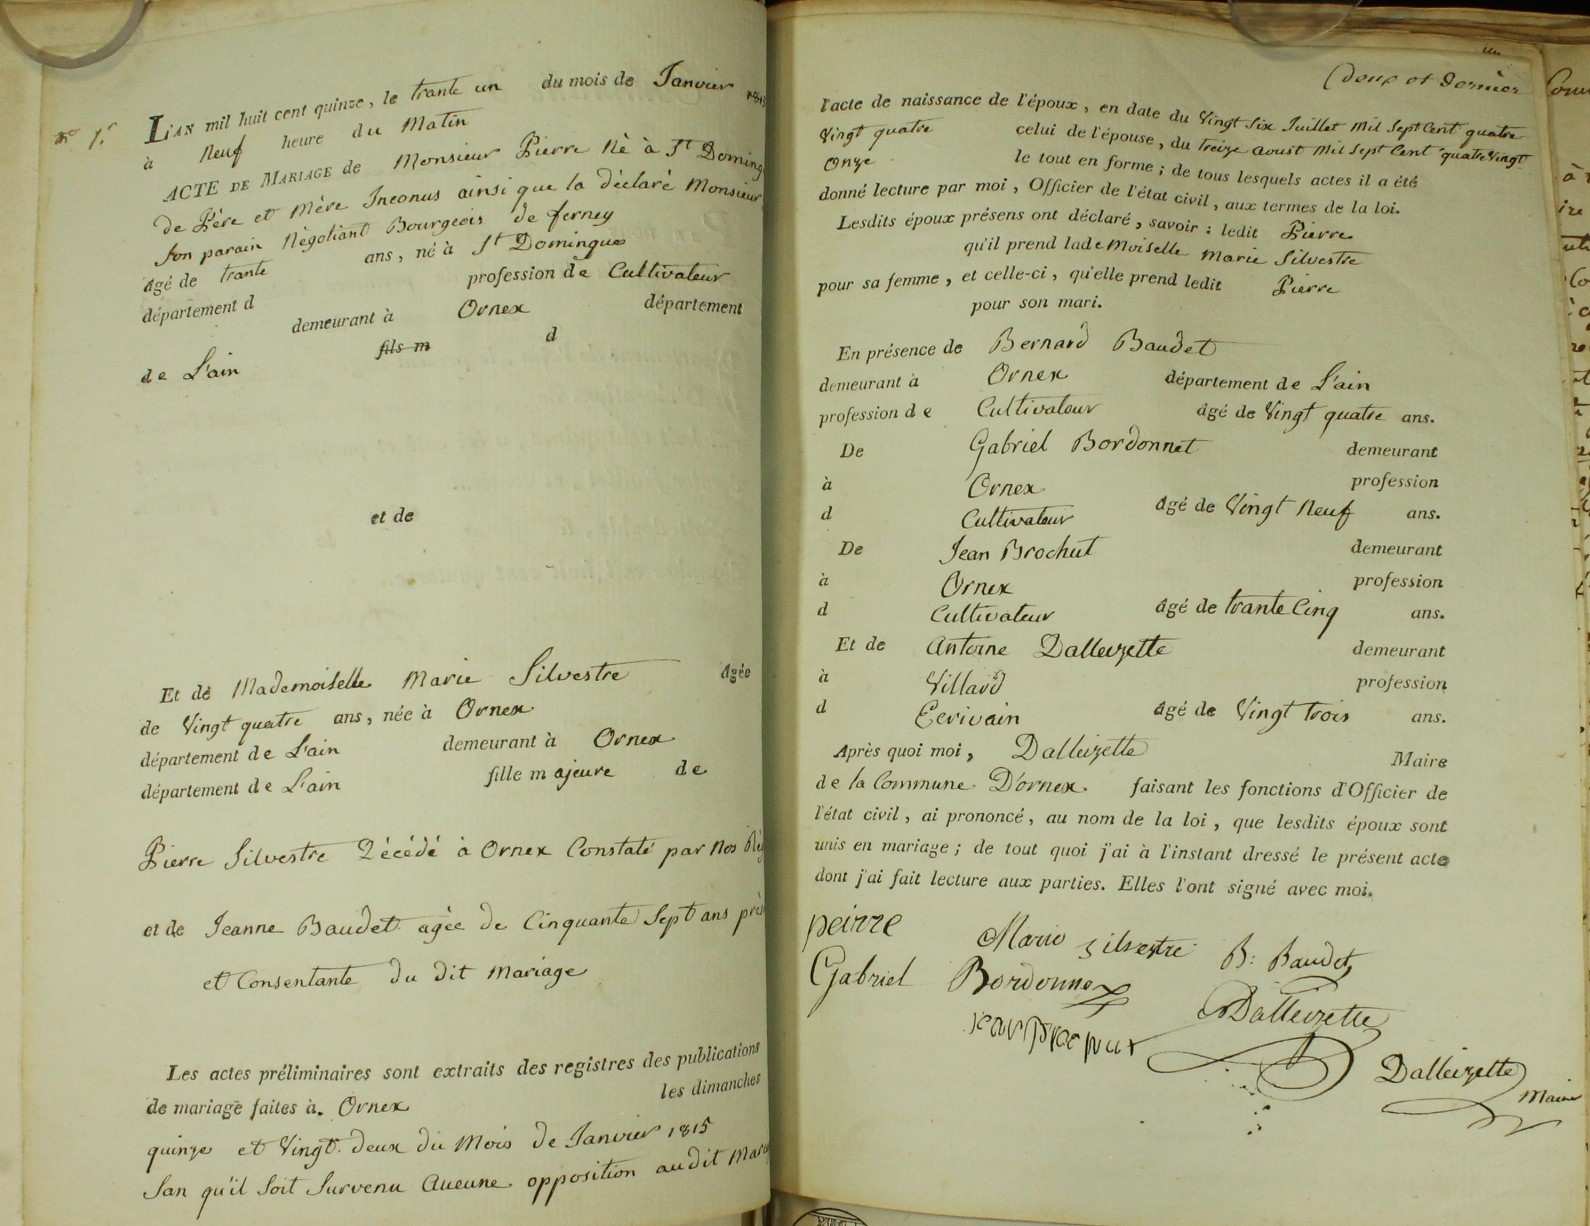 n.° 1.r
L'AN mil huit cent quinze, le trante un du mois de Janvier 1815
à Neuf heure du Matin
ACTE DE MARIAGE de Monsieur Pierre Né à St Doming
de Père et Mère Inconus ainsi que la déclaré Monsieur
son parain Négotiant Bourgeois de ferney
âgé de trante ans, né à St Domingue
département d profession de Cultivateur
demeurant à Ornex département
de L'ain fils m d
et de
Et de Mademoiselle Marie Silvestre âgée
de Vingt quatre ans, née à Ornex
département de L'ain demeurant à Ornex
département de L'ain fille majeure de
Pierre Silvestre Décédé à Ornex Constaté par Nos
et de Jeanne Baudet agée de Cinquante Sept ans
et Consentante du dit Mariage
Les actes préliminaires sont extraits des registres des publications
de mariage faites à Ornex les dimanches
quinze et Vingt deux du Mois de Janvier 1815
San qu'il Soit Survenu Aucune opposition audit
deux et Dernier
l'acte de naissance de l'époux, en date du Vingt Six Juillet Mil Sept Cent quatre
Vingt quatre celui de l'épouse, du treize aoust Mil Sept Cent quatre Vingt
Onze le tout en forme; de tous lesquels actes il a été
donné lecture par moi, Officier de l'état civil, aux termes de la loi.
Lesdits époux présens ont déclaré, savoir: ledit Pierre
qu'il prend lademoiselle Marie Silvestre
pour sa femme, et celle-ci, qu'elle prend ledit Pierre
pour son mari.
En présence de Bernard Baudet
demeurant à Ornex département de L'ain
profession de Cultivateur âgé de Vingt quatre ans.
De Gabriel Bordonnet demeurant
à Ornex profession
d Cultivateur âgé de Vingt Neuf ans.
De Jean Brochut demeurant
à Ornex profession
d Cultivateur âgé de trante Cinq ans.
Et de Antoine Dalleizette demeurant
à Villard profession
d Ecrivain âgé de Vingt trois ans.
Après quoi moi, Dalleizette Maire
de la Commune D'ornex faisant les fonctions d'Officier de
l'état civil, ai prononcé, au nom de la loi, que lesdits époux sont
unis en mariage; de tout quoi j'ai à l'instant dressé le présent acte
dont j'ai fait lecture aux parties. Elles l'ont signé avec moi.
peirre Marie silvestre B: Baudet
Gabriel Bordonnex ADalleizette
Dalleizette Maire